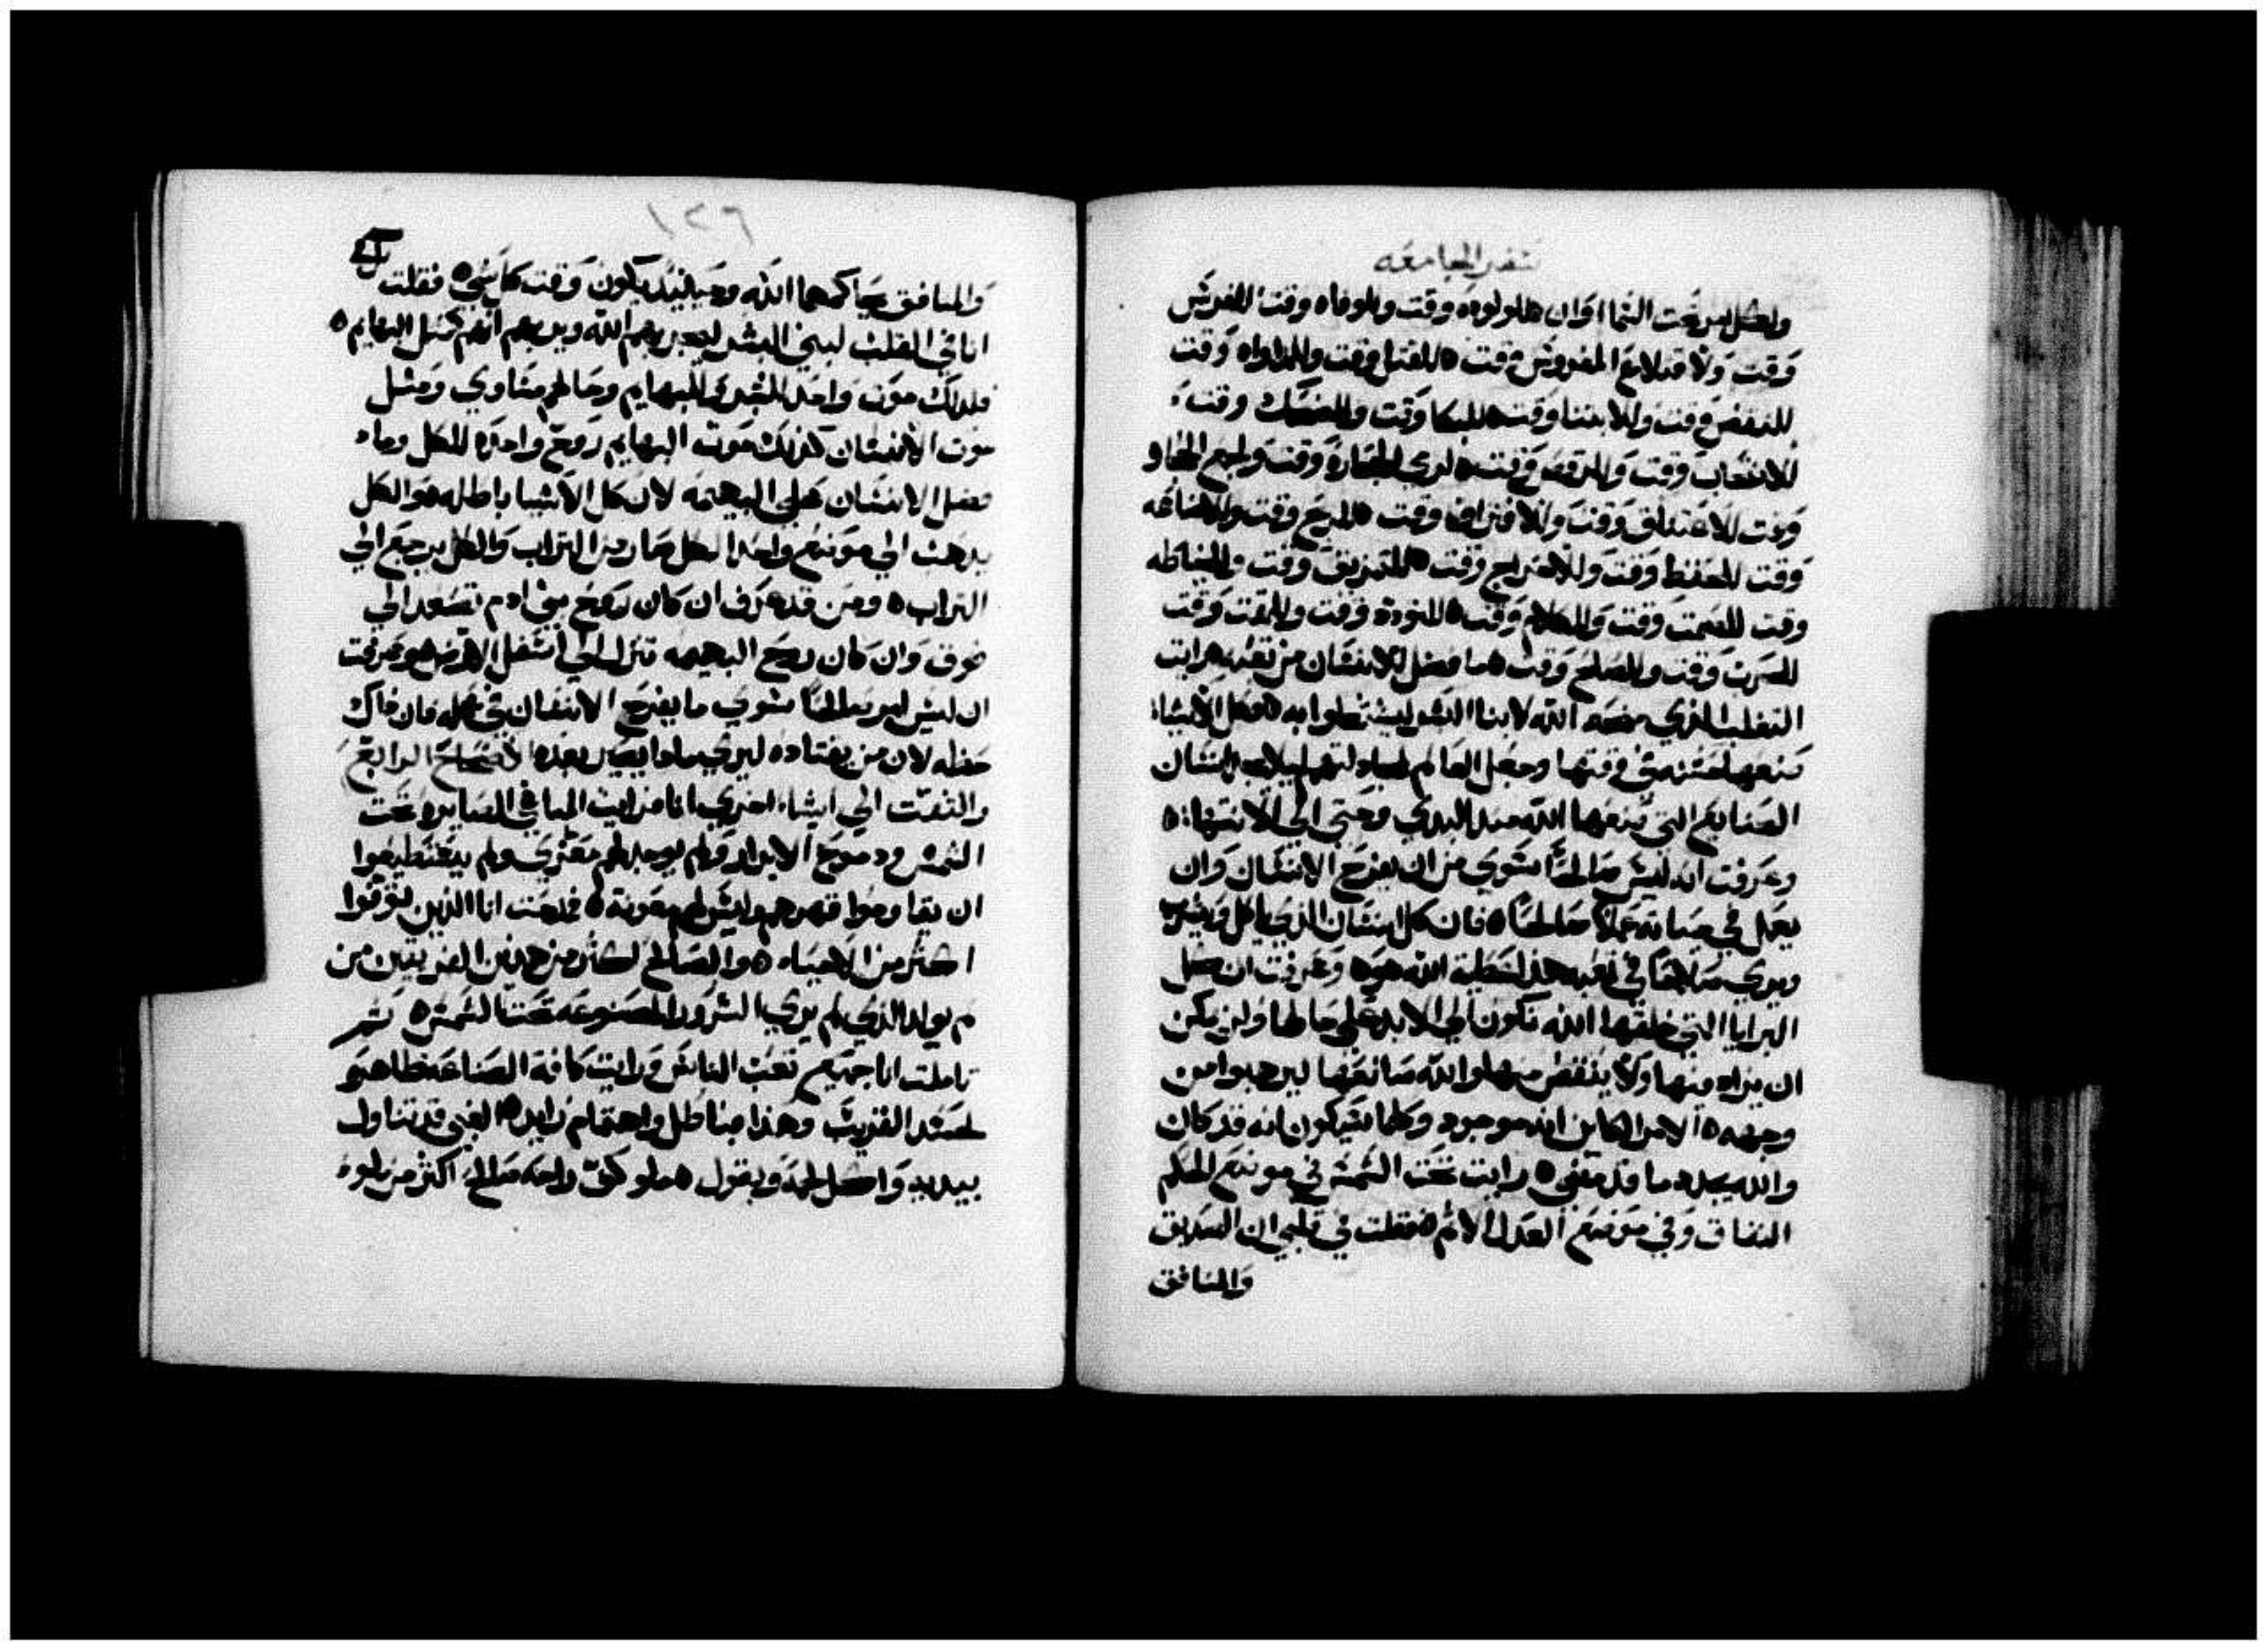 سفر الجامعه
ولكل امر تحت السما اوان للولوده وقت وللوفاه وقت للغرس
وقت ولاقتلاع المغروس وقت للقتل وقت وللمداواه وقت
للنقض وقت وللابتنا وقت للبكا وقت وللضحك وقت
للانتحاب وقت وللرقص وقت لرمي الحجاره وقت ولجمع الحجاره
وقت للاعتناق وقت وللافتراق وقت للربح وقت وللاضاعه
وقت للحفظ وقت وللاخراج وقت للتمزيق وقت وللخياطه
وقت للصمت وقت وللكلام وقت للتودد وقت وللمقت وقت
للحرب وقت وللصلح وقت ما فضل للانسان من تعبه رايت
التقلب الذي منحه الله لابنا البشر ليشتغلوا به كل الاشيا
صنعها حسنه في وقتها وجعل العالم لمجادلتهم ليلا يجد الانسان
الصنايع التي صنعها الله منذ البدي وحتي الي الانتها
وعرفت انه ليس صالحًا سوي من ان يفرح الانسان وان
يعمل في حياته عملاً صالحًا فان كل انسان الذي ياكل ويشرب
ويري صلاحًا في تعبه هذا عطية الله هو وعرفت ان كل
البرايا التي خلقها الله تكون الي الابد علي حالها ولن يمكن
ان يزاد فيها ولا ينقض منها والله صانعها ليرهبوا من
وجهه الامر الكاين انه موجود وكلما سيكون انه قد كان
والله يجدد ما قد مضي رايت تحت الشمس في موضع الحكم
النفاق وفي موضع العدل الاثم فقلت في قلبي ان الصديق
والمنافق
١٢٦
والمنافق يحاكمهما الله وحينيذ يكون وقت كل شي فقلت
انا في القلب لبني البشر ليجربهم الله ويريهم انهم كمثل البهايم
فلذلك موت واحد للبشر وللبهايم وحالهم متساوي ومثل
موت الانسان كذلك موت البهايم روح واحده للكل وماد
فضل الانسان علي البهيمه لان كل الاشيا باطله هو الكل
يذهب الي موضع واحد الكل صار من التراب والكل يرجع الي
التراب ومن قد عرف ان كان روح بني ادم تصعد الي
فوق وان كان روح البهيمه تنزل الي اسفل الارض هو فعرفت
ان ليس امر صالحًا سوي ما يفرح الانسان في عمله فان ذاك
حظه لان من يقتاده ليري ماذا يصير بعده الاصحاح الرابع
والتفت الي اشياء اخري انا فرايت المبا في الصايره تحت
الشمس ودموع الابرار ولم يوجد لهم معزي ولم يستطيعوا
ان يقاوموا قهرهم وليس لهم معونة فمدحت انا الذين توفوا
اكثر من الاحياء والصالح اكثر من هذين الفريقين من
لم يولد الذي لم يري الشرور المصنوعه تحت الشمس ثم
تاملت انا جميع تعب الناس ورايت كافة الصناعه ظاهره
لحسد القريب وهذا باطل واهتمام زايد الغبي قد تناول
بيديه واكل لحمه ويقول ملو كف راحه صالح اكثر من ملو